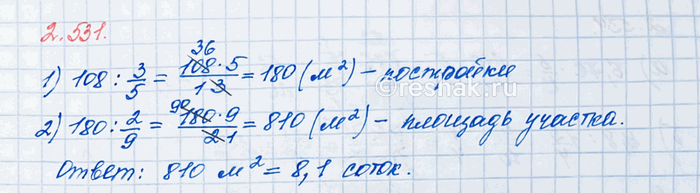 2.531.
1) 108 : 3/5 = 108 · 5 / 1 3 = 180 (м²) – постройки
36
2) 180 : 2/9 = 180 · 9 / 2 1 = 810 (м²) – площадь участка.
90
Ответ: 810 м² = 8,1 соток.
© reshak.ru